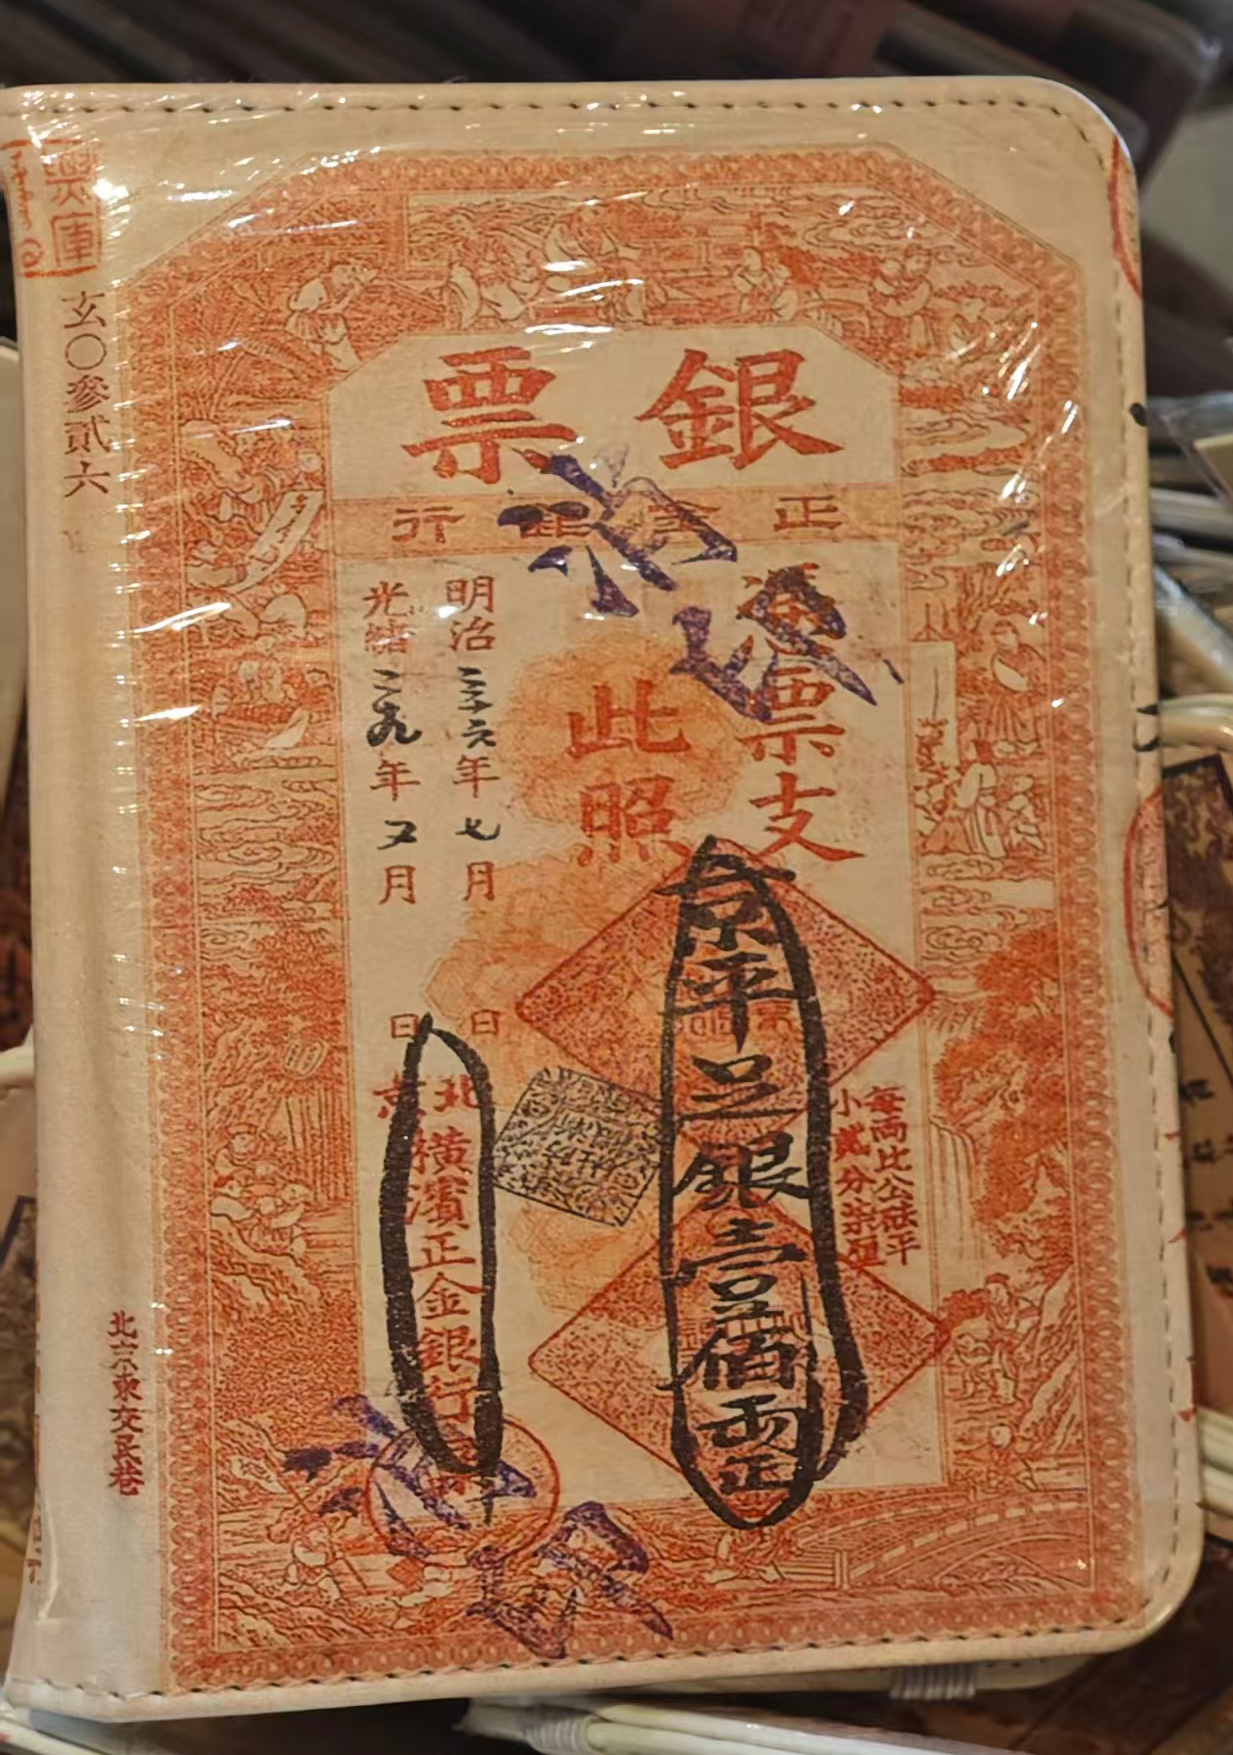 銀票
正金銀行
憑票支
此照
京平足銀壹佰兩正
每兩比公砝平
小貳分
明治三十六年七月 日
光緒二十九年又月 日
北京
橫濱正金銀行
玄〇參貳六
北京東交民巷
庫